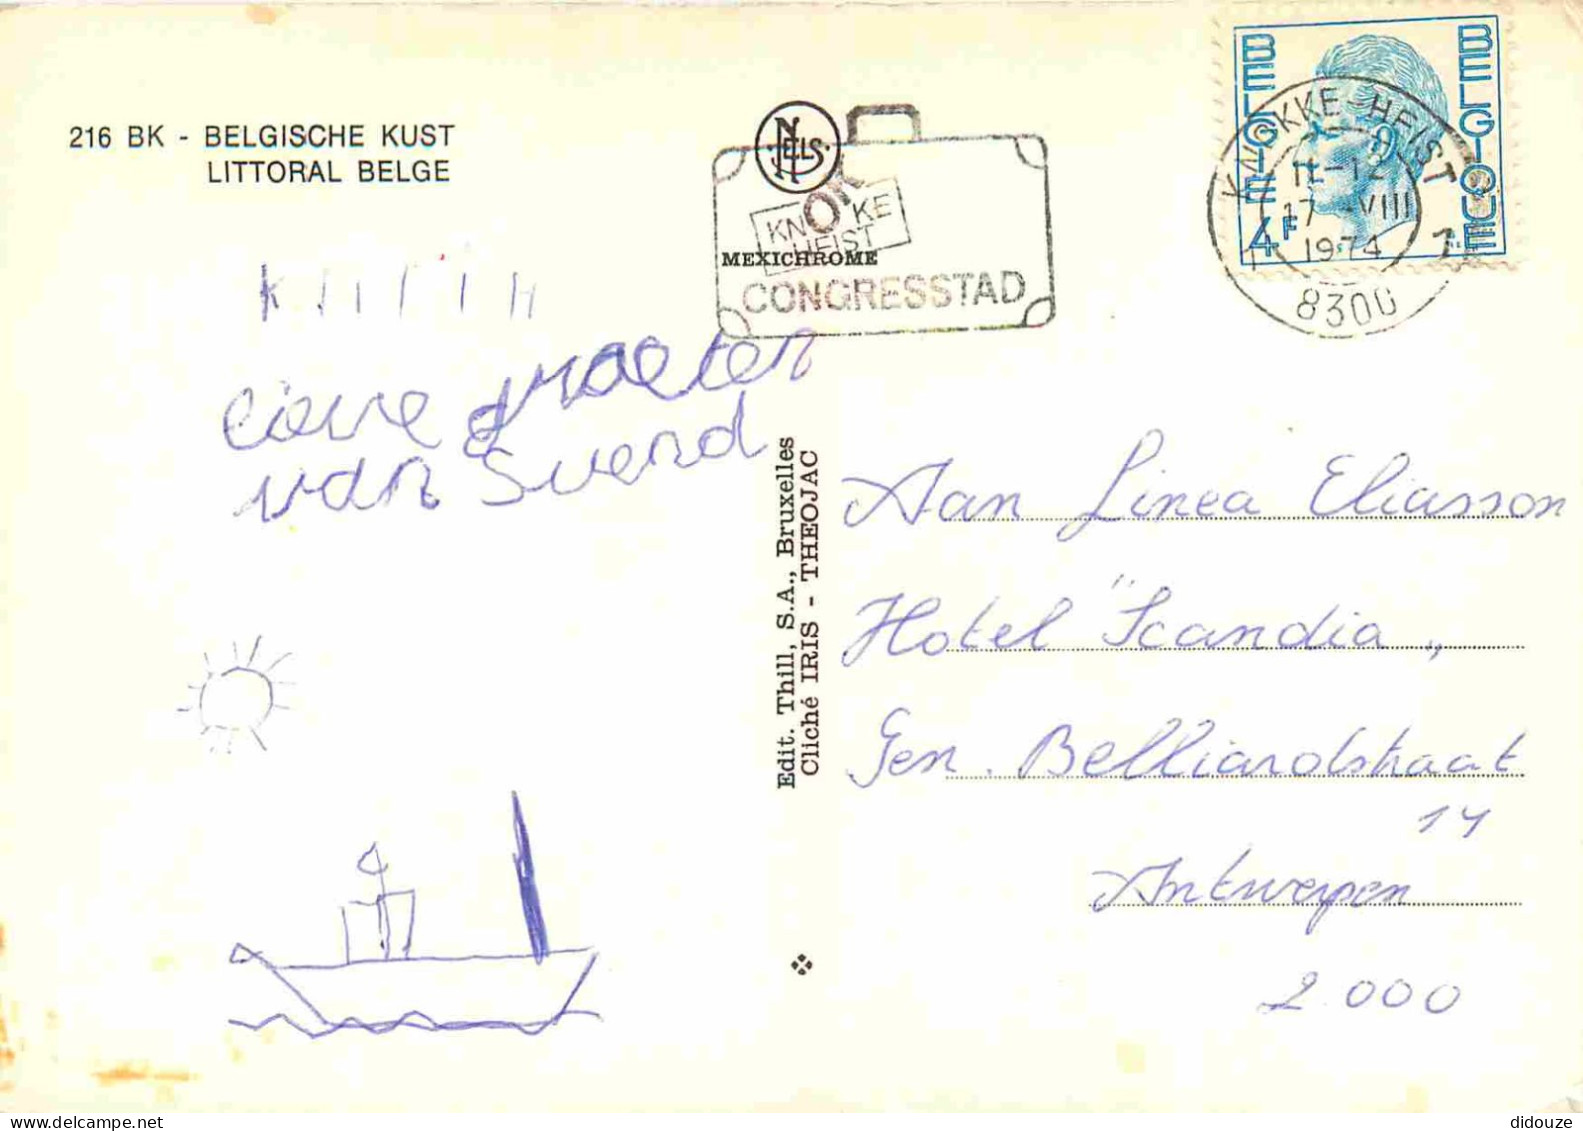 216 BK - BELGISCHE KUST
LITTORAL BELGE
NELS
KNOKKE
HEIST
MEXICHROME
CONGRESSTAD
BELGIE
BELGIQUE
4F
KNOKKE-HEIST
11-12
17 -VIII
1974
1 1
8300
lieve groeten
van Svend
Edit. Thill, S.A., Bruxelles
Cliché IRIS - THEOJAC
Aan Linea Eliasson
Hotel "Scandia„
Gen. Belliardstraat
14
Antwerpen
2.000
didouze